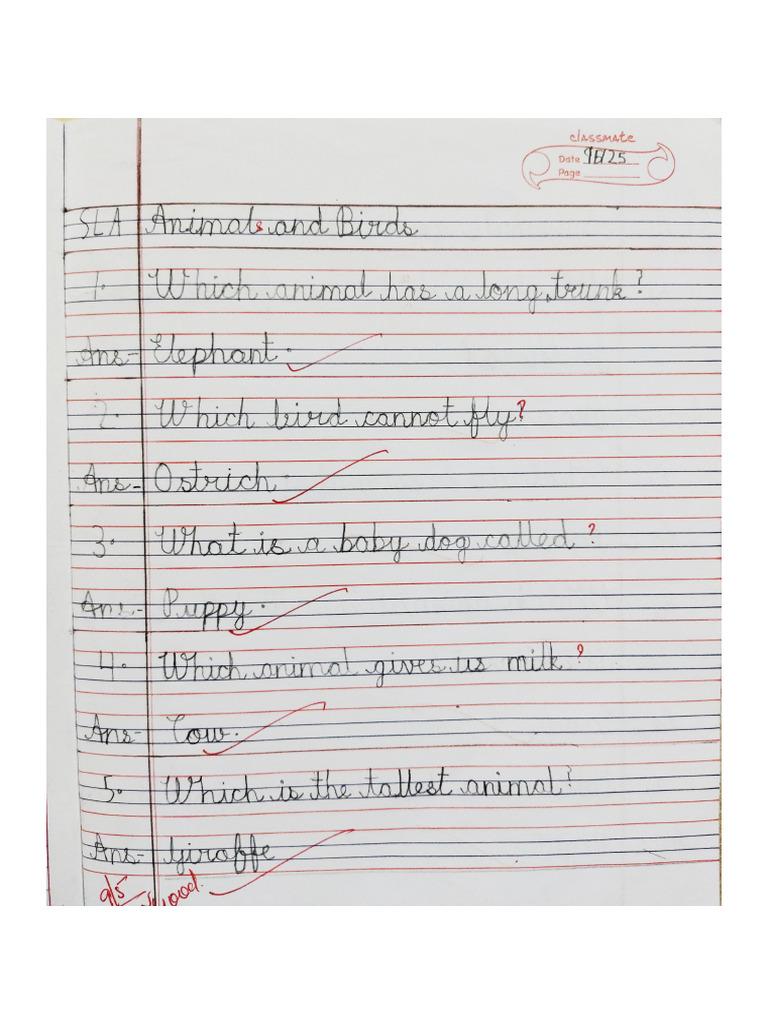 classmate
Date 9/5/25
Page
SLA Animals and Birds
1. Which animal has a long trunk?
Ans- Elephant.
2. Which bird cannot fly?
Ans- Ostrich.
3. What is a baby dog called?
Ans- Puppy.
4. Which animal gives us milk?
Ans- Cow.
5. Which is the tallest animal?
Ans- Giraffe
9/5 Good.